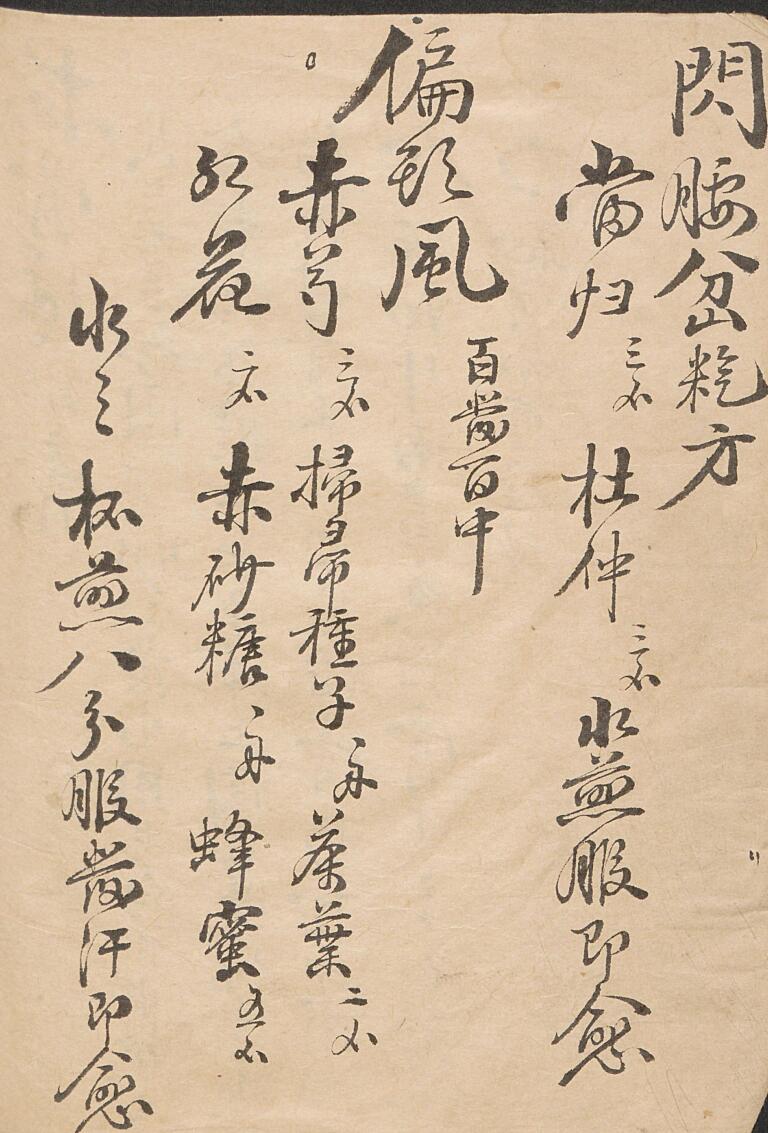 閃腰岔粃方
當归 三分 杜仲 二分 水煎服即愈
偏頭風 百發百中
赤芍 二分 掃帚種子 一分 茶葉 二分
紅花 二分 赤砂糖 一分 蜂蜜 五分
水三杯煎八分服發汗即愈